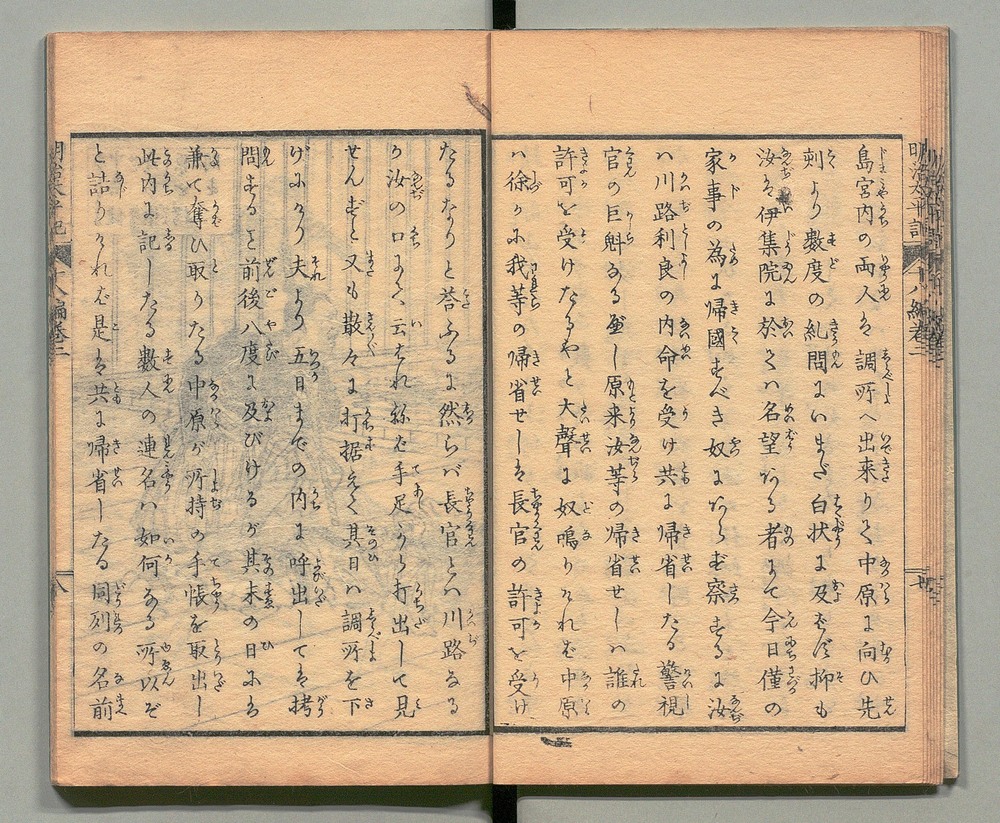 島宮内の両人は調所へ出来りて中原に向ひ先
剌より數度の糺問にいまだ白状に及ばず抑も
汝は伊集院に於ては名望ある者にて今日僅の
家事の為に帰國すべき奴にあらず察するに汝
ハ川路利良の内命を受け共に帰省したる警視
官の巨魁なる可し原来汝等の帰省せしハ誰の
許可を受けたるやと大聲に奴鳴りければ中原
ハ徐かに我等の帰省せしは長官の許可を受け
明治太平記 十八編巻二 七
たるなりと荅ふるに然らバ長官とハ川路なる
か汝の口にて云はれ
せんずと又も散々に打据えて其日ハ調所を下
げにけり夫より五日までの内に呼出しては拷
問すること前後八度に及びけるが其末の日にハ
兼て奪ひ取りたる中原が所持の手帳を取出し
此内に記したる數人の連名ハ如何なる所以ぞ
と詰りければ是は共に帰省したる同列の名前
明治太平記 十八編巻二 八